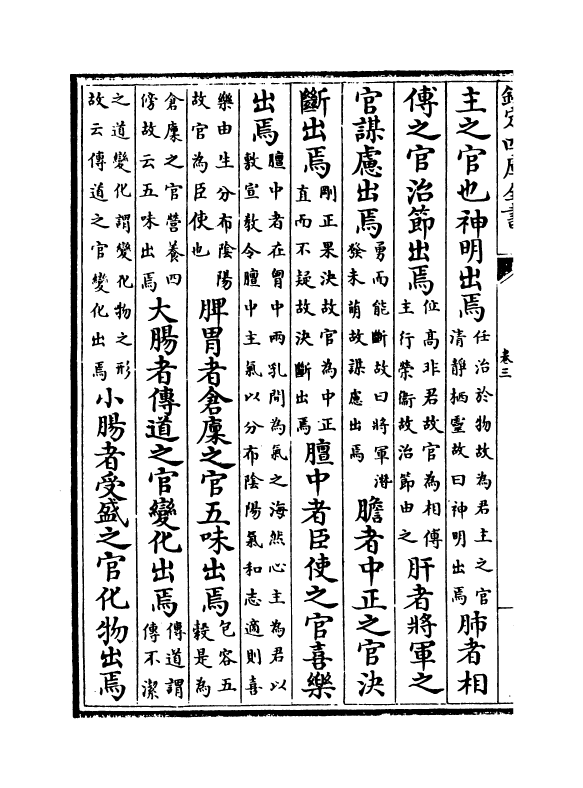 欽定四庫全書
卷三
主之官也神明出焉任治於物故為君主之官清靜栖靈故曰神明出焉肺者相
傅之官治節出焉位高非君故官為相傅主行榮衛故治節由之肝者將軍之
官謀慮出焉勇而能斷故曰將軍潜發未萌故謀慮出焉膽者中正之官決
斷出焉剛正果決故官為中正直而不疑故決斷出焉膻中者臣使之官喜樂
出焉膻中者在胷中兩乳間為氣之海然心主為君以敷宣教令膻中主氣以分布陰陽氣和志適則喜
樂由生分布陰陽故官為臣使也脾胃者倉廩之官五味出焉包容五穀是為
倉廩之官營養四傍故云五味出焉大腸者傳道之官變化出焉傳道謂傳不潔
之道變化謂變化物之形故云傳道之官變化出焉小腸者受盛之官化物出焉